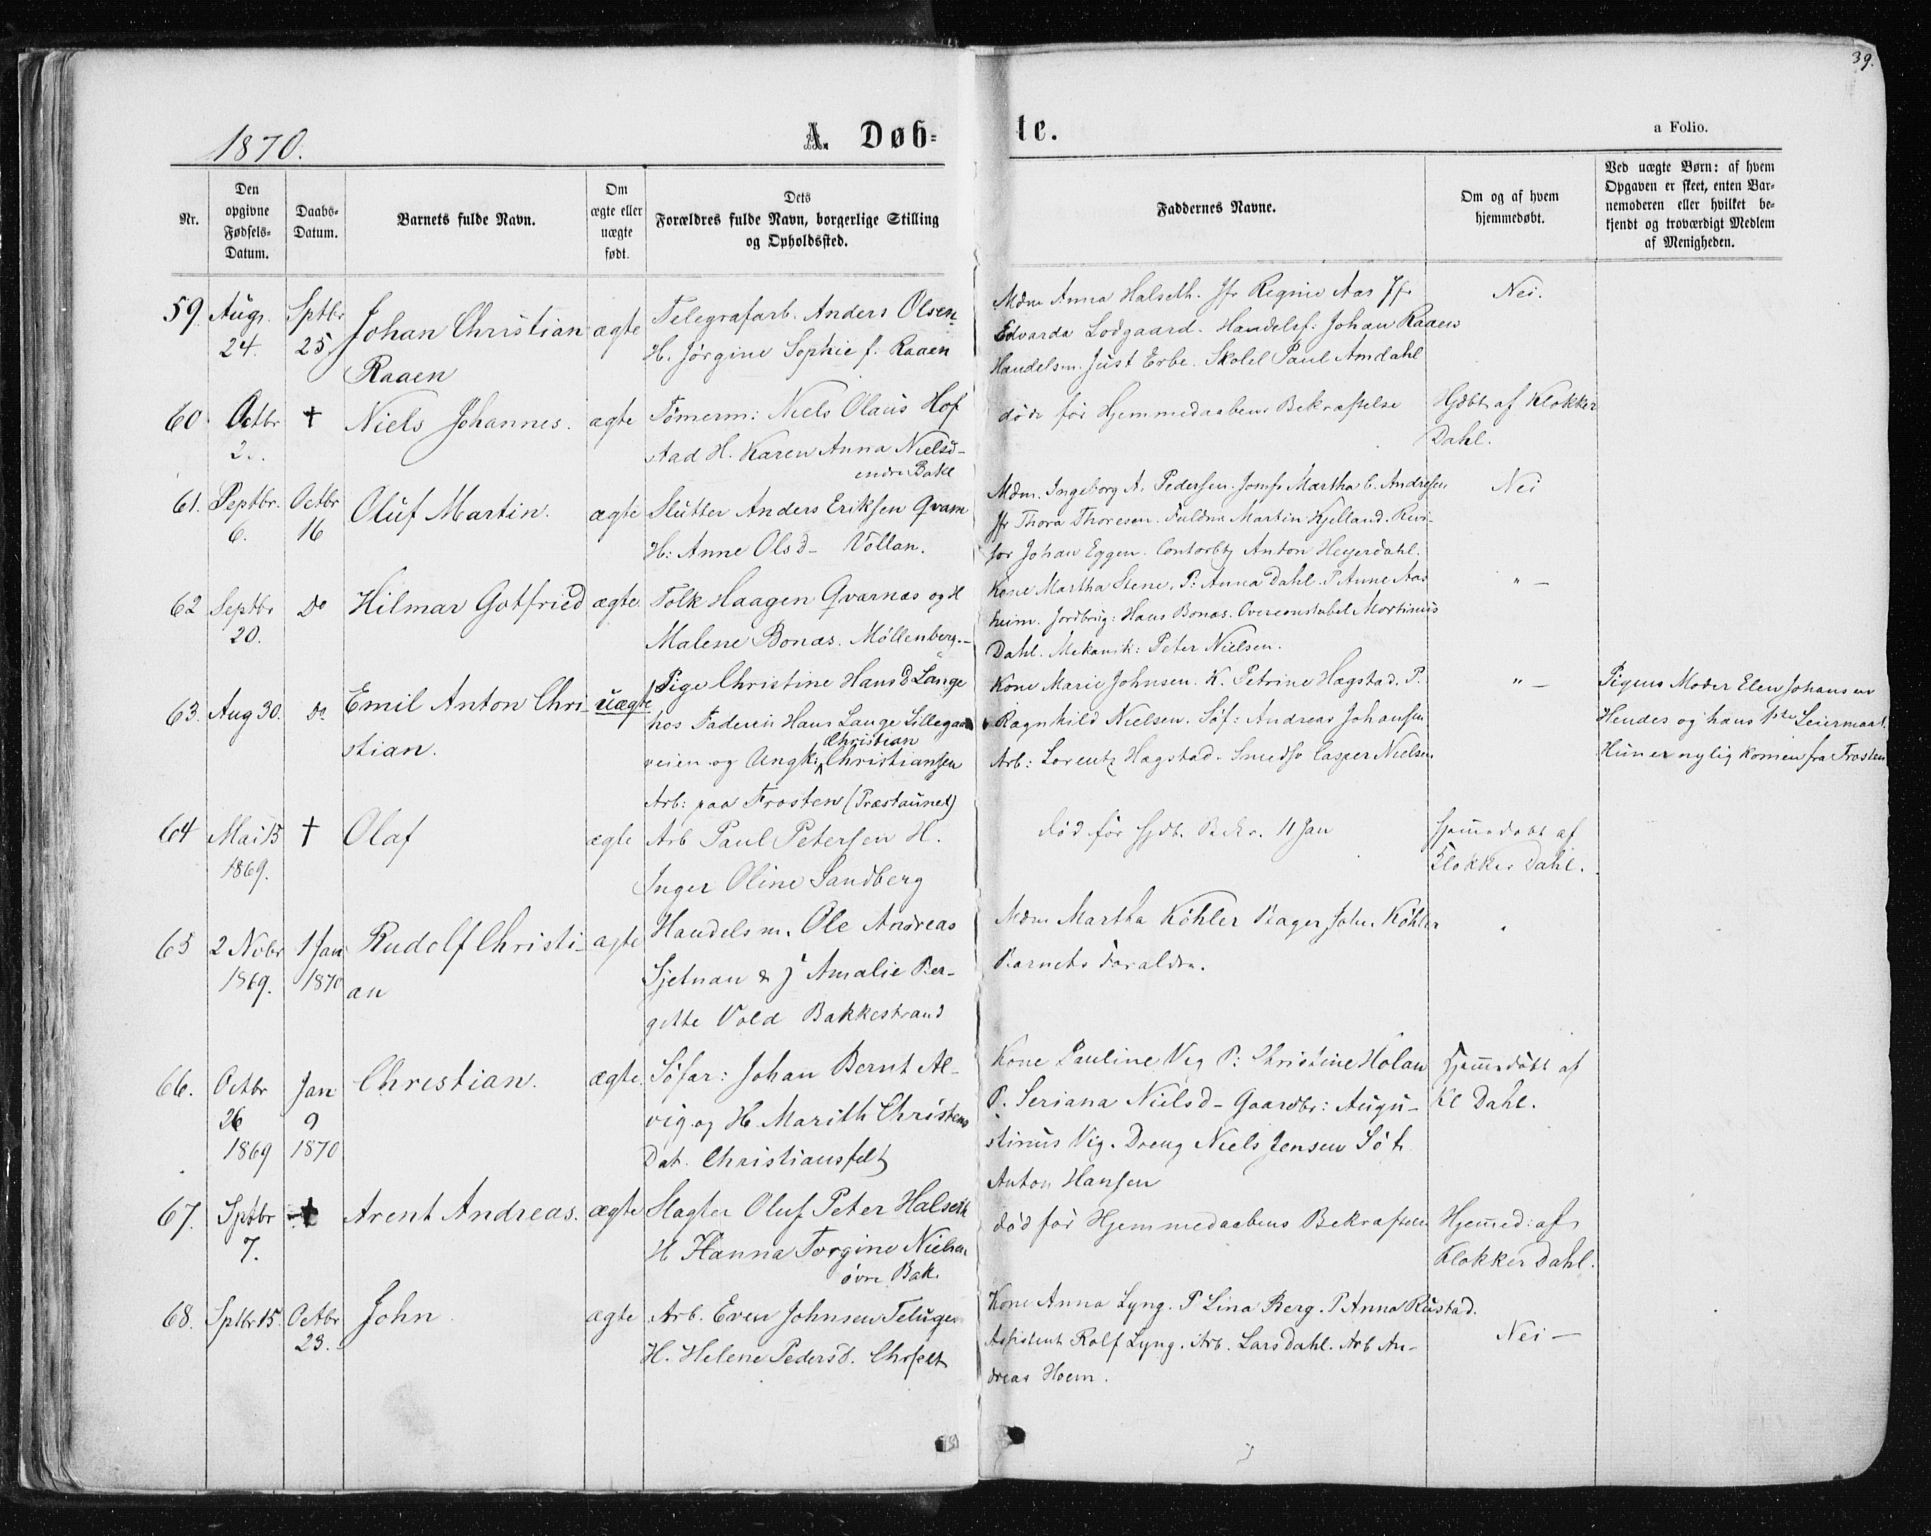 39.
1870.
A. Døbte.
a Folio.
Nr.
Den opgivne Fødsels-Datum.
Daabs-Datum.
Barnets fulde Navn.
Om ægte eller uægte født.
Dets Forældres fulde Navn, borgerlige Stilling og Opholdssted.
Faddernes Navne.
Om og af hvem hjemmedøbt.
Ved uægte Børn: af hvem Opgaven er skeet, enten Barnemoderen eller hvilket bekjendt og troværdigt Medlem af Menigheden.
59. Augs. 24. Sptbr 25
Johan Christian
Raaen
ægte
Telegrafarb. Anders Olsen
H. Jørgine Sophie f. Raaen
Mdm Anna Halseth. Jfr Regine Aas Jfr
Edvarda Lodgaard. Handelsf: Johan Raaen
Handelsm. Just Erbe. Skolel Paul Amdahl
Nei.
60. Octbr 2. †
Niels Johannes.
ægte
Tömerm: Niels Olaus Hof
stad H. Karen Anna Nielsd-
øvre Bakl
døde før Hjemmedaabens Bekræftelse
Hjdbt af Klokker
Dahl.
61. Septbr. 6. Octbr 16
Oluf Martin.
ægte
Slutter Anders Eriksen Qvam
H: Anne Olsd- Vollan.
Mdm. Ingeborg A. Pedersen. Jomfr Martha C. Andresen
Jfr Thora Thoresen. Fuldm Martin Kjelland. Revi-
sor Johan Eggen. Contorbtj Anton Heyerdahl.
Nei
62 Septbr 20. Do
Hilmar Gotfried
ægte.
Tolk Haagen Qvarnæs og H
Malene Bonæs. Møllenberg.-
Kone Martha Stene. P: Anna Dahl. P Anne Aas
heim. Jordbrug: Hans Bonæs. Overconstabel Mortinus
Dahl. Mekanik: Peter Nielsen.
" -
63. Aug 30. Do
Emil Anton Chri-
stian.
uægte
Pige Christine Hansd Lange
hos Faderen Hans Lange Lillegaards
veien og Ungk: Christian Christiansen
Arb: paa Frosten (Præstaunet)
Kone Marie Johnsen. K. Petrine Hagstad. P.
Ragnhild Nielsen. Söf: Andreas Johansen
Arb: Lorentz Hagstad. Smedsv Casper Nielsen
" -
Pigens Moder Elen Johansen
Hendes og hans 1ste Leiermaal.
Hun er nylig komen fra Frosten
64 Mai 15 1869. †
Olaf
ægte
Arb Paul Petersen H.
Inger Oline Sandberg
død før Hjdt. Bekr. 11 Jan
Hjemedøbt af
Klokker Dahl.
65 2 Novbr 1869. 1 Jan 1870
Rudolf Christi-
an
ægte
Handelsm. Ole Andreas
Sjetnan & J Amalie Ber-
gitte Vold Bakkestrand
Mdm Martha Köhler Bager Johs. Köhler
Barnets Forældre.
66. Octbr 26 1869 Jan 9 1870
Christian.
ægte.
Söfar: Johan Bernt Al-
vig og H. Marith Christens
Dat. Christiansfelt
Kone Pauline Vig P: Christine Holan
P. Seriana Nielsd- Gaardbr: Augu-
stinus Vig. Dreng Niels Jensen Sø f.
Anton Hansen
Hjemedöbt af
Kl Dahl.
67. Sptbr 7. †
Arent Andreas.
ægte
Slagter Oluf Peter Halseth
H Hanna Torgine Nielsen
øvre Bak.
død før Hjemmedaabens Bekræftelse
Hjemed: af
Klokker Dahl.
68. Sptbr 15. Octbr 23.
John.
ægte
Arb. Even Johnsen Teluge
H. Helene Pedersd. Chrfelt
Kone Anna Lyng. P Lina Berg. P Anna Rustad.
Assistent Rolf Lyng. Arb. Lars Dahl. Arb An-
dreas Hoem.
Nei -